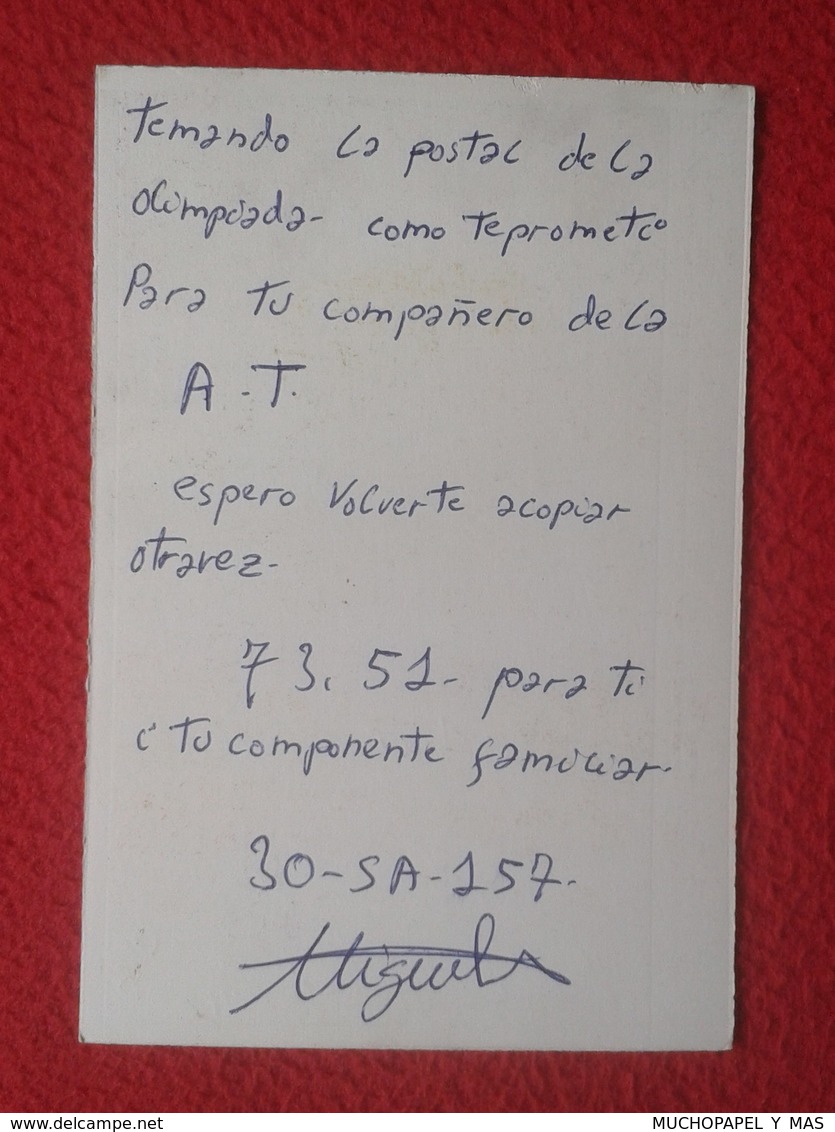 temando la postal de la
olimpiada- como teprometio
Para tu compañero de la
A.T.
espero Volverte acopiar
otravez-
73.51- para ti
i tu componente familiar-
30-SA-157-
Miguel
delcampe.net
MUCHOPAPEL Y MAS